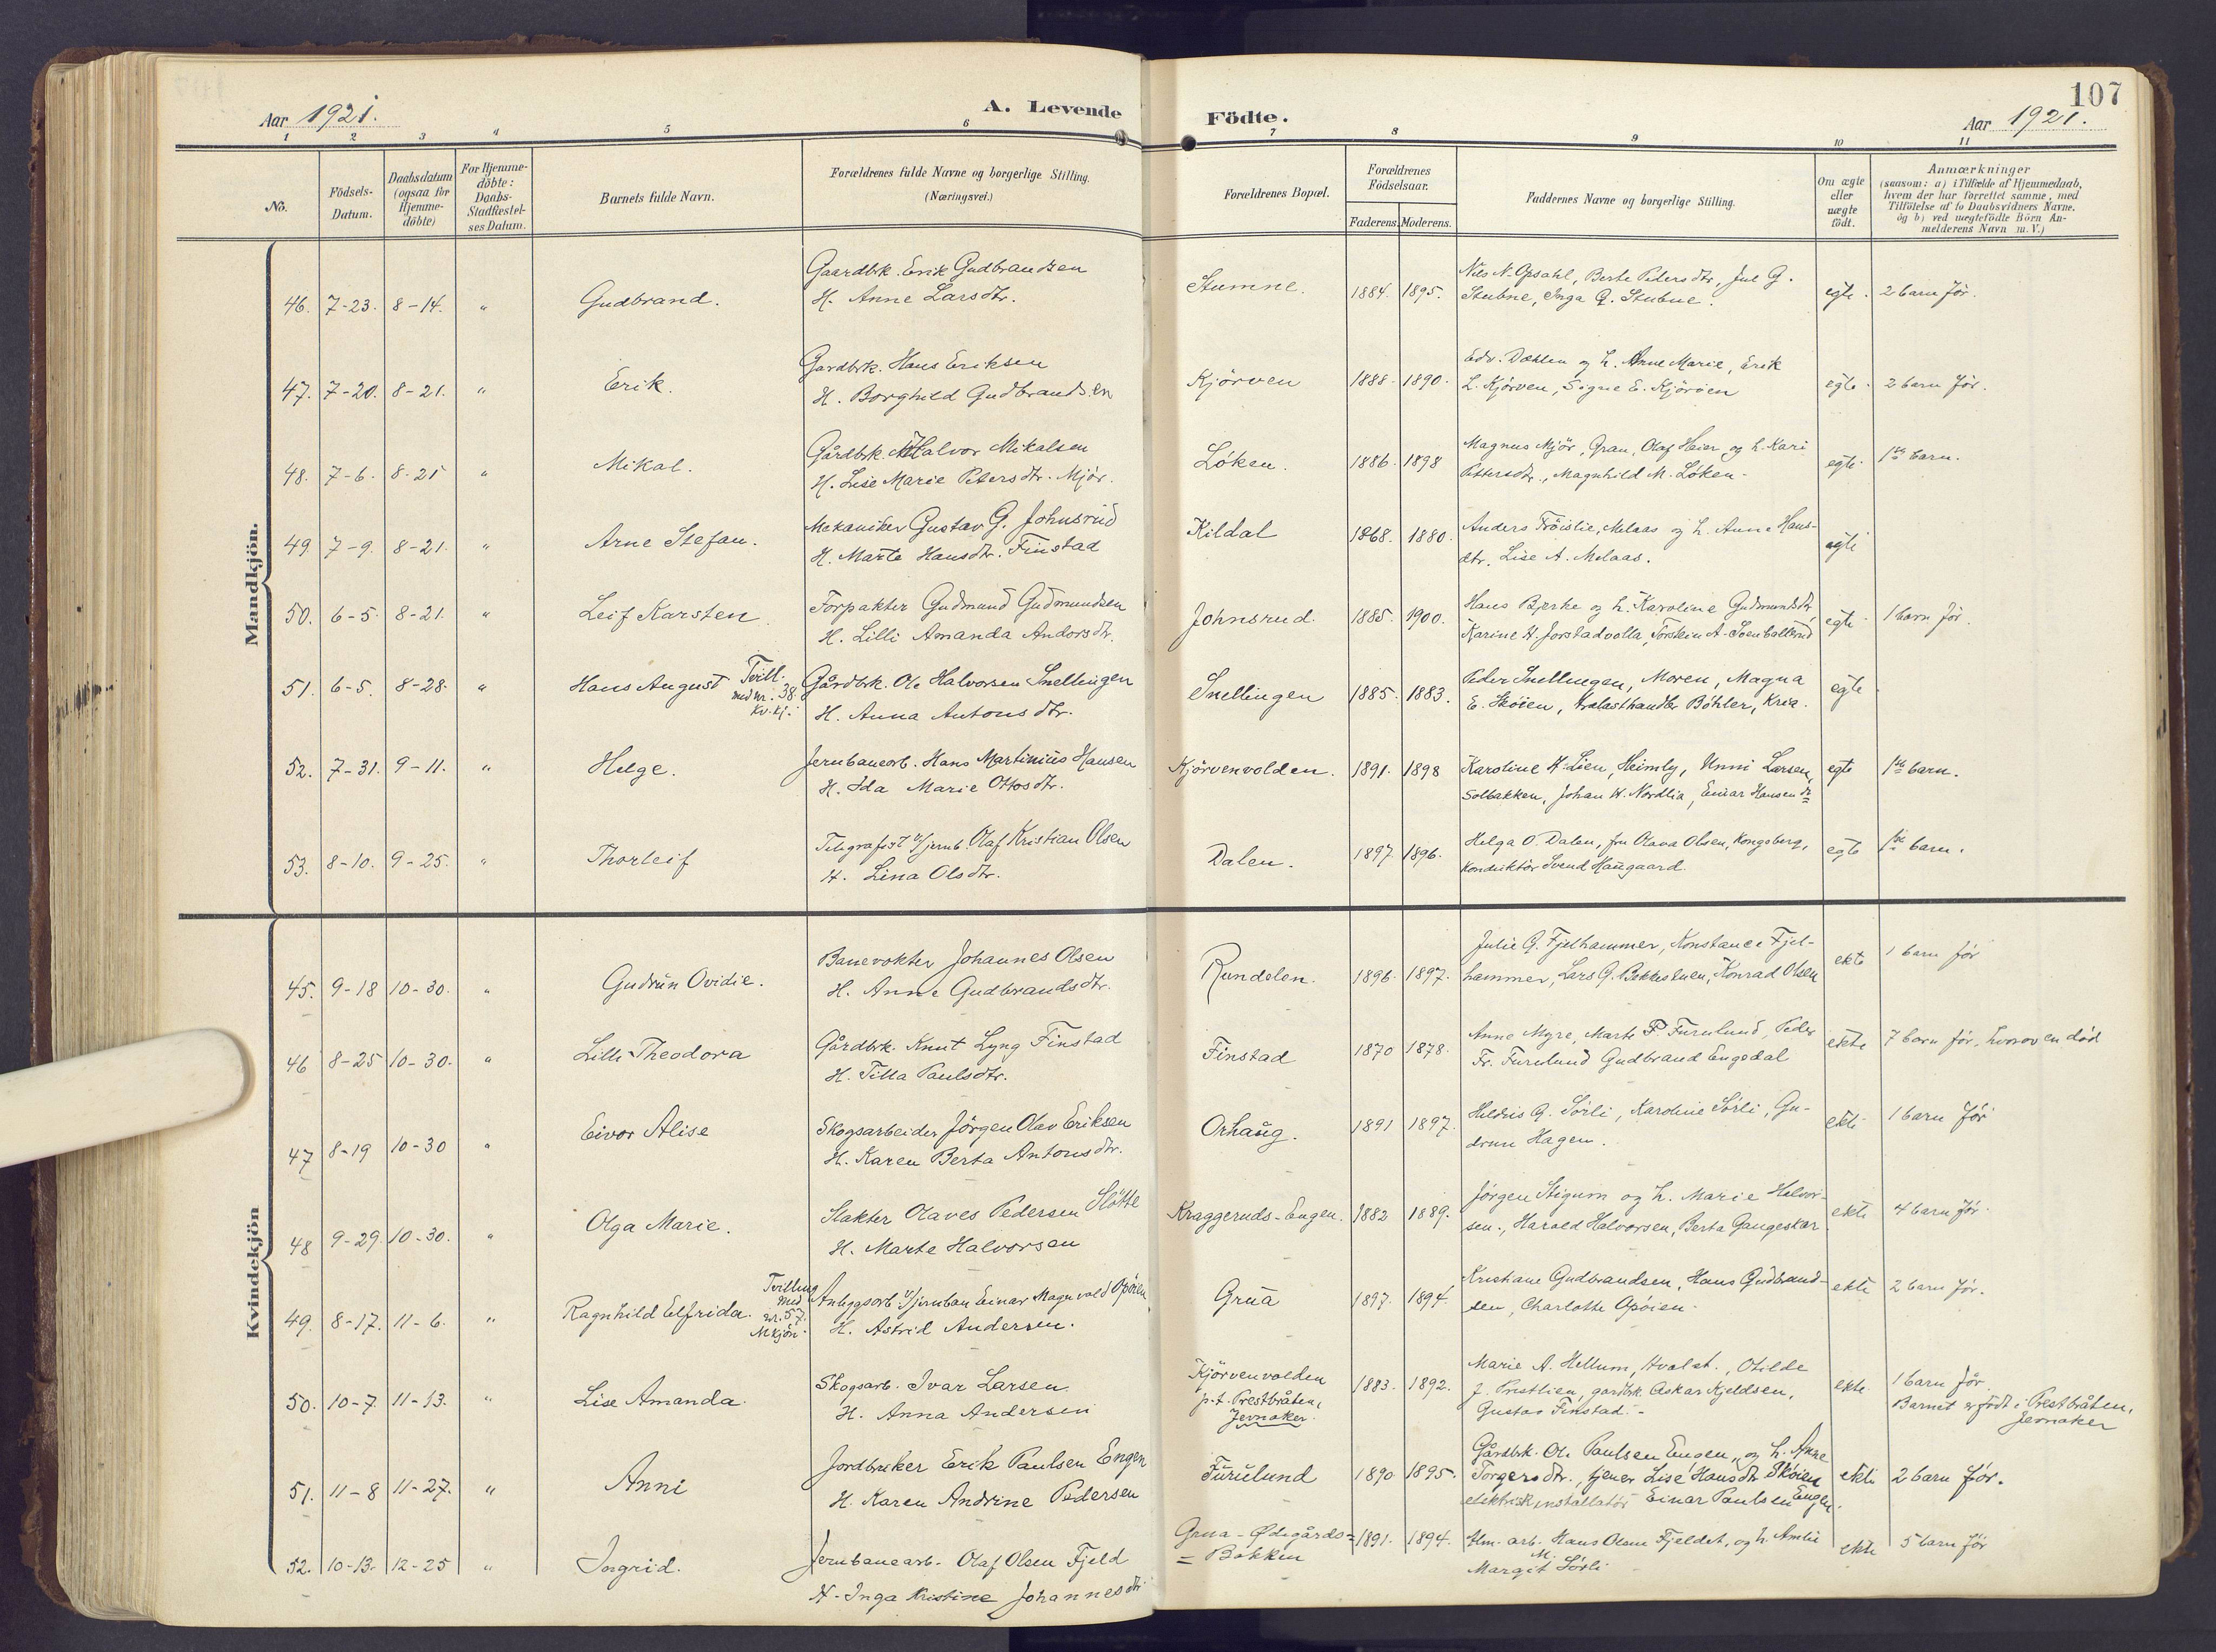 107
Aar 1921.
A. Levende
Födte.
Aar 1921.
1 2 3 4 5 6 7 8 9 10 11
No.
Födsels-
Datum.
Daabsdatum
(ogsaa for
Hjemme-
döbte)
For Hjemme-
döbte:
Daabs-
Stadfæstel-
ses Datum.
Barnets fulde Navn.
Forældrenes fulde Navne og borgerlige Stilling.
(Næringsvei.)
Forældrenes Bopæl.
Forældrenes
Födselsaar.
Faderens. Moderens.
Faddernes Navne og borgerlige Stilling.
Om ægte
eller
uægte
födt.
Anmærkninger
(saasom: a) i Tilfælde af Hjemmedaab,
hvem der har forrettet samme, med
Tilföielse af to Daabsvidners Navne,
og b) ved uægtefödte Börn An-
melderens Navn m.V.)
Mandkjön.
46. 7-23. 8-14. " Gudbrand.
Gaardbk. Erik Gudbrandsen
H. Anne Larsdtr.
Stumne. 1884. 1895.
Nils N. Opsahl, Berte Pedersdtr, Juul G.
Stubne, Inga G. Stubne.
egte. 2 barn før.
47. 7-20. 8-21. " Erik.
Gardbrk. Hans Eriksen
H. Borghild Gudbrandsen
Kjörven 1888. 1890.
Edv. Dæhlen og h. Anne Marie, Erik
L. Kjörven, Signe E. Kjörven
egte. 2 barn før.
48. 7-6. 8-21 " Mikal.
Gårdbk. Halvor Mikalsen
H. Lise Marie Petersdtr. Mjör.
Löken. 1886. 1898
Magnus Mjör, Gran, Olaf Heier og h. Kari
Pettersdtr., Magnhild M. Löken.
egte. 1ste barn.
49. 7-9. 8-21. " Arne Stefan.
Mekaniker Gustav G. Johnsrud
H. Marte Hansdtr. Finstad
Kildal 1868. 1880.
Anders Tröislie, Melaas og h. Anne Hans-
dtr. Lise A. Melaas.
egte
50. 6-5. 8-21. " Leif Karsten
Forpakter Gudmund Gudmundsen
H. Lilli Amanda Andorsdtr.
Johnsrud. 1885. 1900.
Hans Bjerke og h. Karoline Gudmundsdtr,
Karine H. Jorstadvolla, Torstein A.
egte. 1 barn før.
51. 6-5. 8-28. " Hans August Tvill.
med nr. 38.
Kv.kj.
Gårdbrk. Ole Halvorsen Snellingen
H. Anna Antonsdtr.
Snellingen 1885. 1883.
Peder Snellingen, Moren, Magna
E. Sköien, Böhler, Kria.
egte
52. 7-31. 9-11. " Helge.
Jernbanearb. Hans Martinius Hansen
H. Ida Marie Ottosdtr.
Kjörvenvolden. 1891. 1898
Karoline H. Lien, Heimly, Unni Larsen,
Solbakken, Johan H. Nordlia, Einar Hansen
egte 1ste barn.
53. 8-10. 9-25. " Thorleif
Telegrafist v/jernb. Olaf Kristian Olsen
H. Lina Olsdtr.
Dalen. 1897. 1896.
Helga O. Dalen, fru Olava Olsen, Kongsberg,
Konduktör Svend Haugaard.
egte 1ste barn.
Kvindekjön
45. 9-18 10-30. " Gudrun Ovidie.
Banevokter Johannes Olsen
H. Anne Gudbrandsdtr.
Rundelen. 1896. 1897.
Julie G. Fjelhammer, Konstance Fjel-
hammer, Lars G. Konrad Olsen
ekte 1 barn før
46 8-25 10-30. " Lilli Theodora
Gårdbrk. Knut Lyng Finstad
H. Tilla Paulsdtr.
Finstad 1870 1878.
Anne Myre, Marte P. Furulund, Peder
Fr. Furulund Gudbrand Engedal
ekte 7 barn før, hvorav en død
47 8-19 10-30 " Eivor Alise
Skogsarbeider Jörgen Olav Eriksen
H. Karen Berta Antonsdtr.
Orhaug. 1891 1897.
Heldris G. Sörli, Karoline Sörli, Gu-
drun Hagen.
ekte 1 barn før
48 9-29. 10-30. " Olga Marie.
Slakter Olaves Pedersen Slötte
H. Marte Halvorsen
Kraggeruds-Engen. 1882 1889.
Jörgen Stigum og h. Marie Halvor-
sen, Harald Halvorsen, Berta Gangeskar.
ekte 4 barn før.
49. 8-17. 11-6. " Ragnhild Elfrida. Tvilling
med
nr. 57.
M.kjön.
Anleggsarb. v/jernban Einar Magnvald Opöien
H. Astrid Andersen.
Grua 1897. 1894.
Kristiane Gudbrandsen, Hans Gudbrand-
sen, Charlotte Opöien.
ekte 2 barn før.
50. 10-7. 11-13. " Lise Amanda.
Skogsarb. Ivar Larsen
H. Anna Andersen
Kjörvenvolden
p.t. Prestbråten,
Jevnaker.
1883. 1892.
Marie A. Hellum, Hvalst., Otilde
J. Prestlien, gardbrk. Oskar Kjeldsen,
Gustav Finstad.
ekte 1 barn før
Barnet er født i Prestbråten,
Jevnaker
51. 11-8 11-27. " Anni
Jordbruker Erik Paulsen Engen
H. Karen Andrine Pedersen
Furulund 1890 1895.
Gårdbrk. Ole Paulsen Engen, og h. Anne
Torgersdtr., tjener Lise Hansdtr Sköien
elektrisk installatör Einar Paulsen Engen.
ekte 2 barn før.
52. 10-13. 12-25 " Ingrid.
Jernbanearb. Olaf Olsen Fjeld
H. Inga Kristine Johannesdtr
Grua - Ødegårds=
= Bakken
1891. 1894.
Alm. arb. Hans Olsen Fjeldet, og h. Amlie
M.
Margit Sörli
ekte 5 barn før